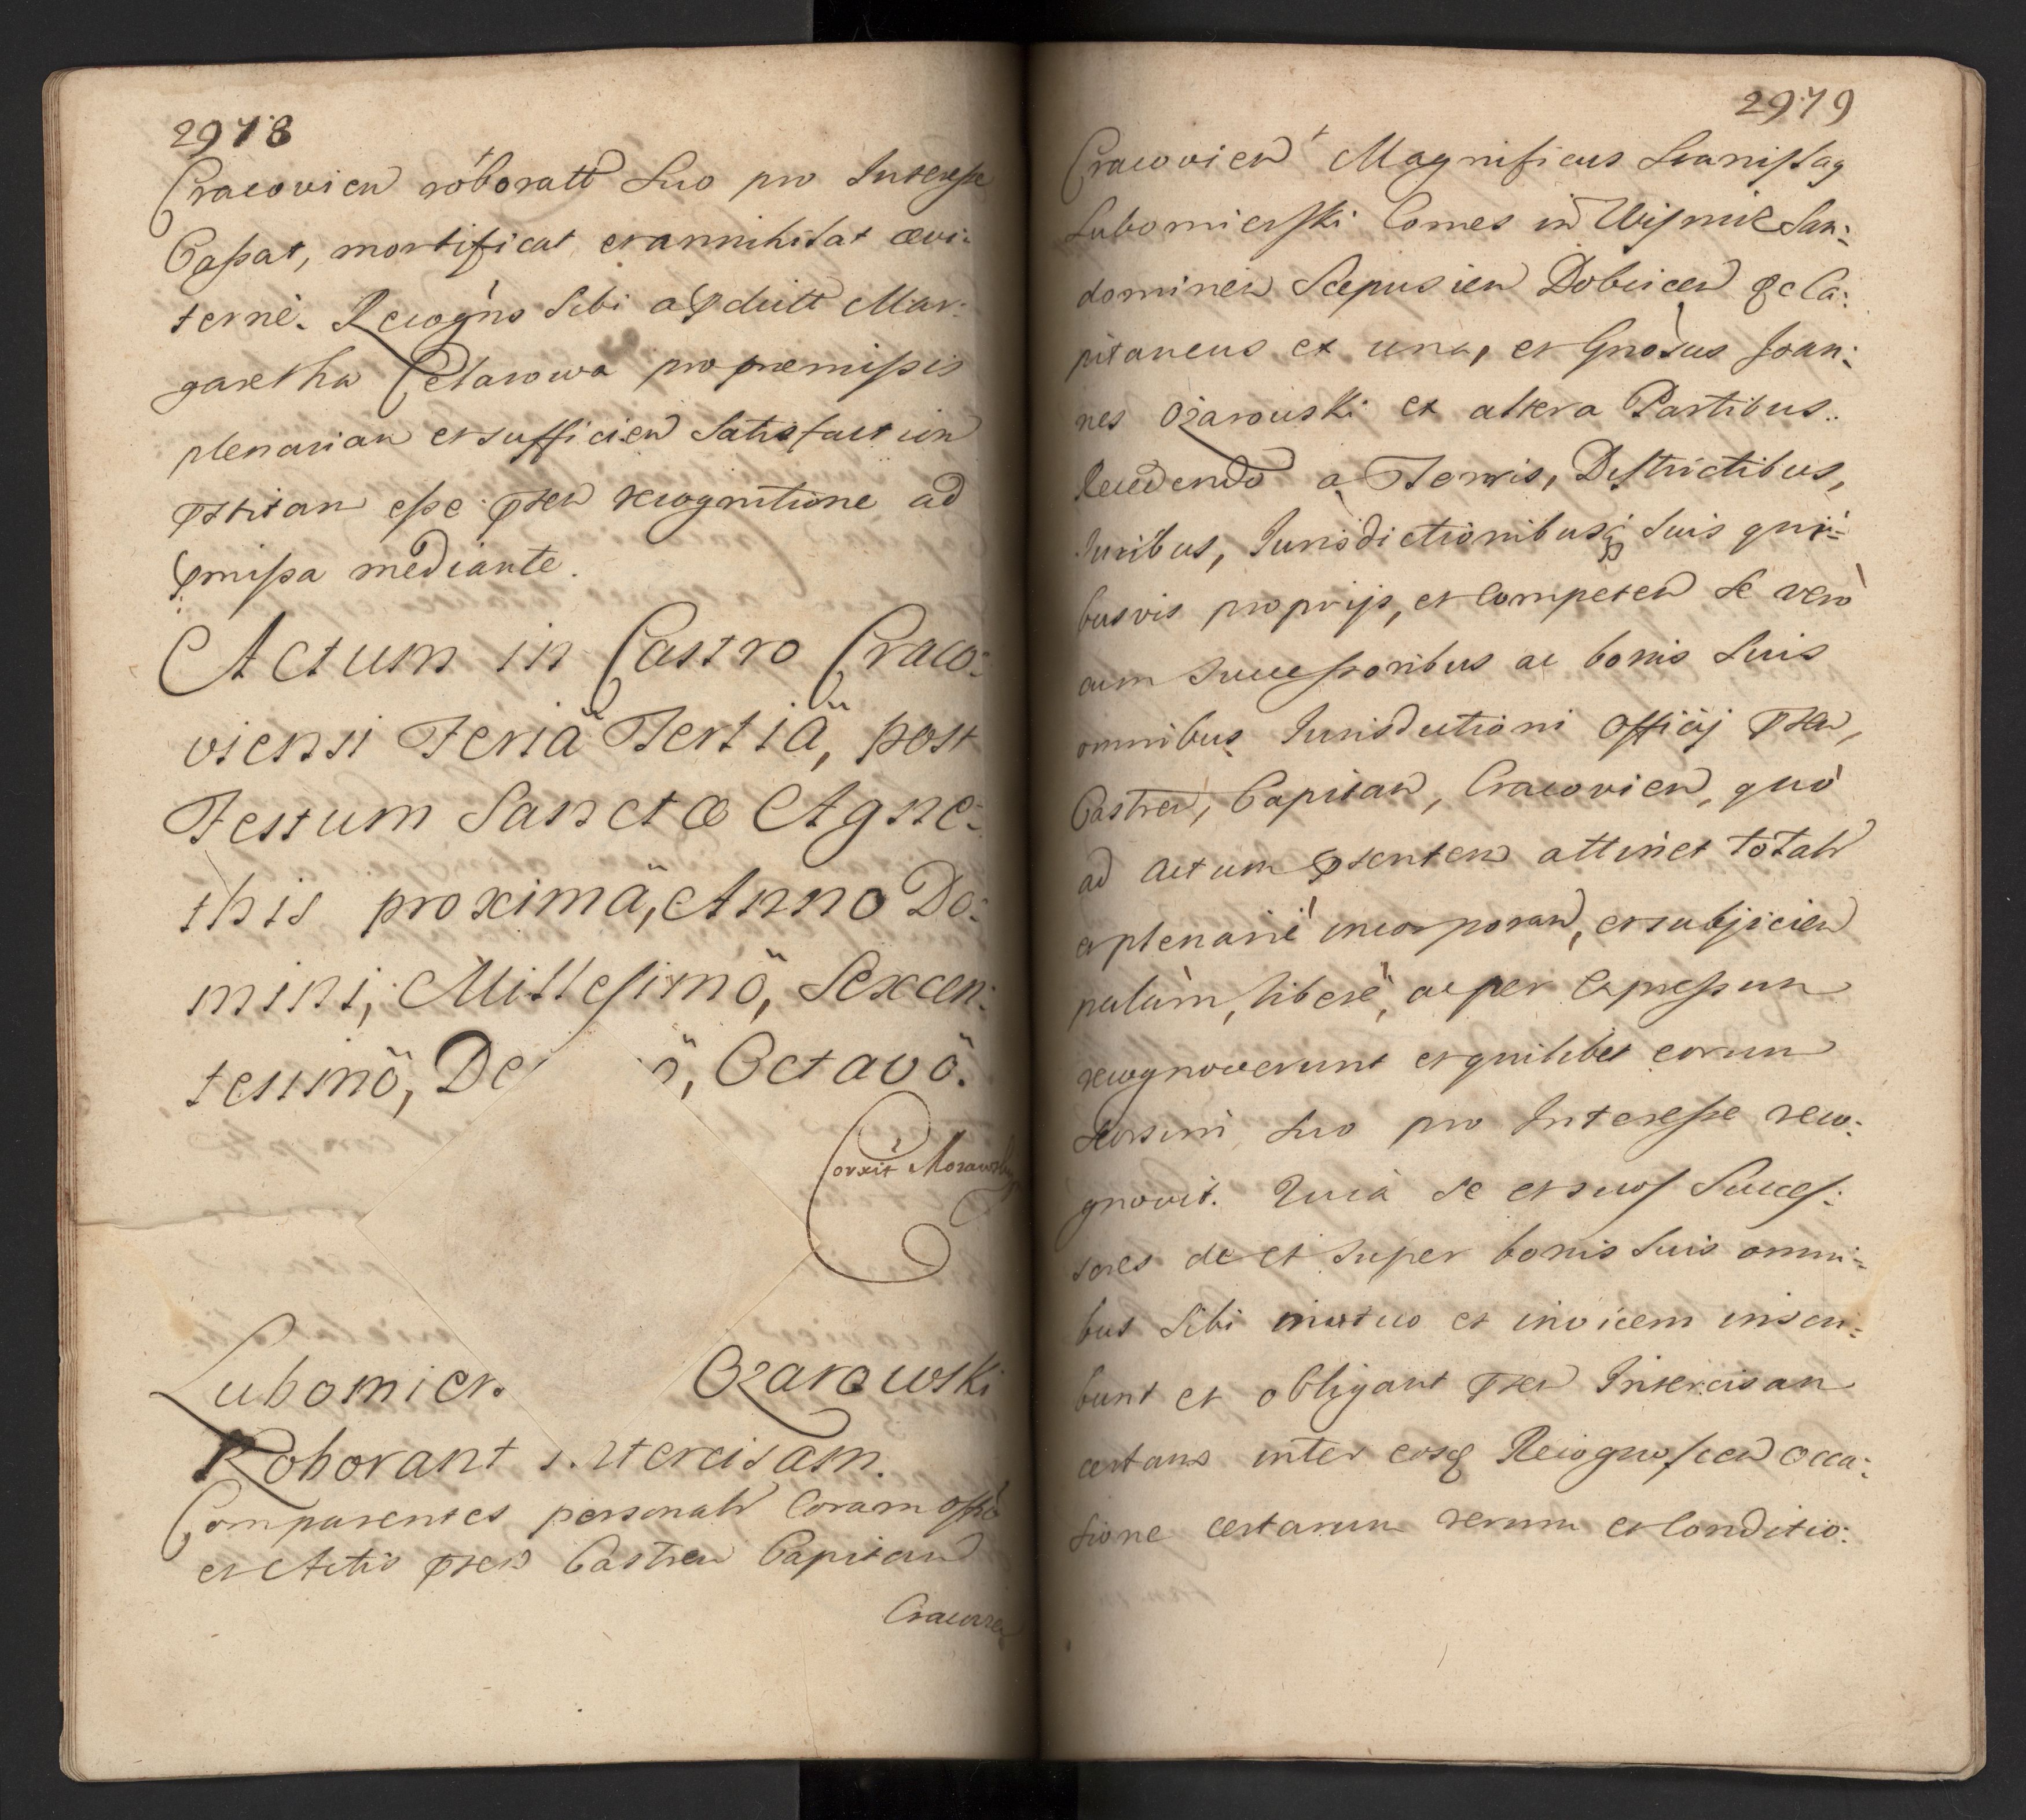 2978
Cracovien roboratt Suo pro Interesse
Cassat, mortificat et annihilat aevi:
ternè. Recogńs Sibi a Pdictt Mar:
garetha Cebarowa pro praemissis
plenarian et sufficien Satisfaction
Pstitan esse Psen recognitione ad
Pmissa mediante.
Actum in Castro Craco:
viensi Feria Tertiä, post
Festum Sanctae Agne:
this proximä, Anno Do:
mini, Millesimö, Sexcen:
tesimö, De ö, Octavö.
Corxit Morawski
Lubomier. Ozarowski
Roborant intercisam.
Comparentes personalr Coram offo
et Actis Psen Castren Capitan
Cracovien
2979
Cracovien Magnificus Stanislaus
Lubomierski Comes in Wisnic San:
domirien Scepusien Dobcicen &c Ca:
pitaneus ex una, et Gnosus Joan:
nes Ozarowski ex altera Partibus.
Recedendo a Terris, Districtibus,
Juribus, Jurisdictionibusq Suis qui:
busvis proprijs, et Competen Se vero
cum Successoribus ac bonis Suis
omnibus Jurisdictioni Officij Psen,
Castren, Capitan, Cracovien, quó
ad actum Psenten attinet totalr
et plenarie incorporan, et subijcien
palàm, liberè, ac per Expressum
recognoverunt et quilibet eorum
seorsim Suo pro Interesse reco:
gnovit. Quia Se et suos Succes:
sores de et Super bonis Suis omni:
bus Sibi mutuo et invicem inscri:
bunt et obligant Psen Intercisan
certam inter eosq Recognoscen occa:
sione certarum rerum et Conditio: